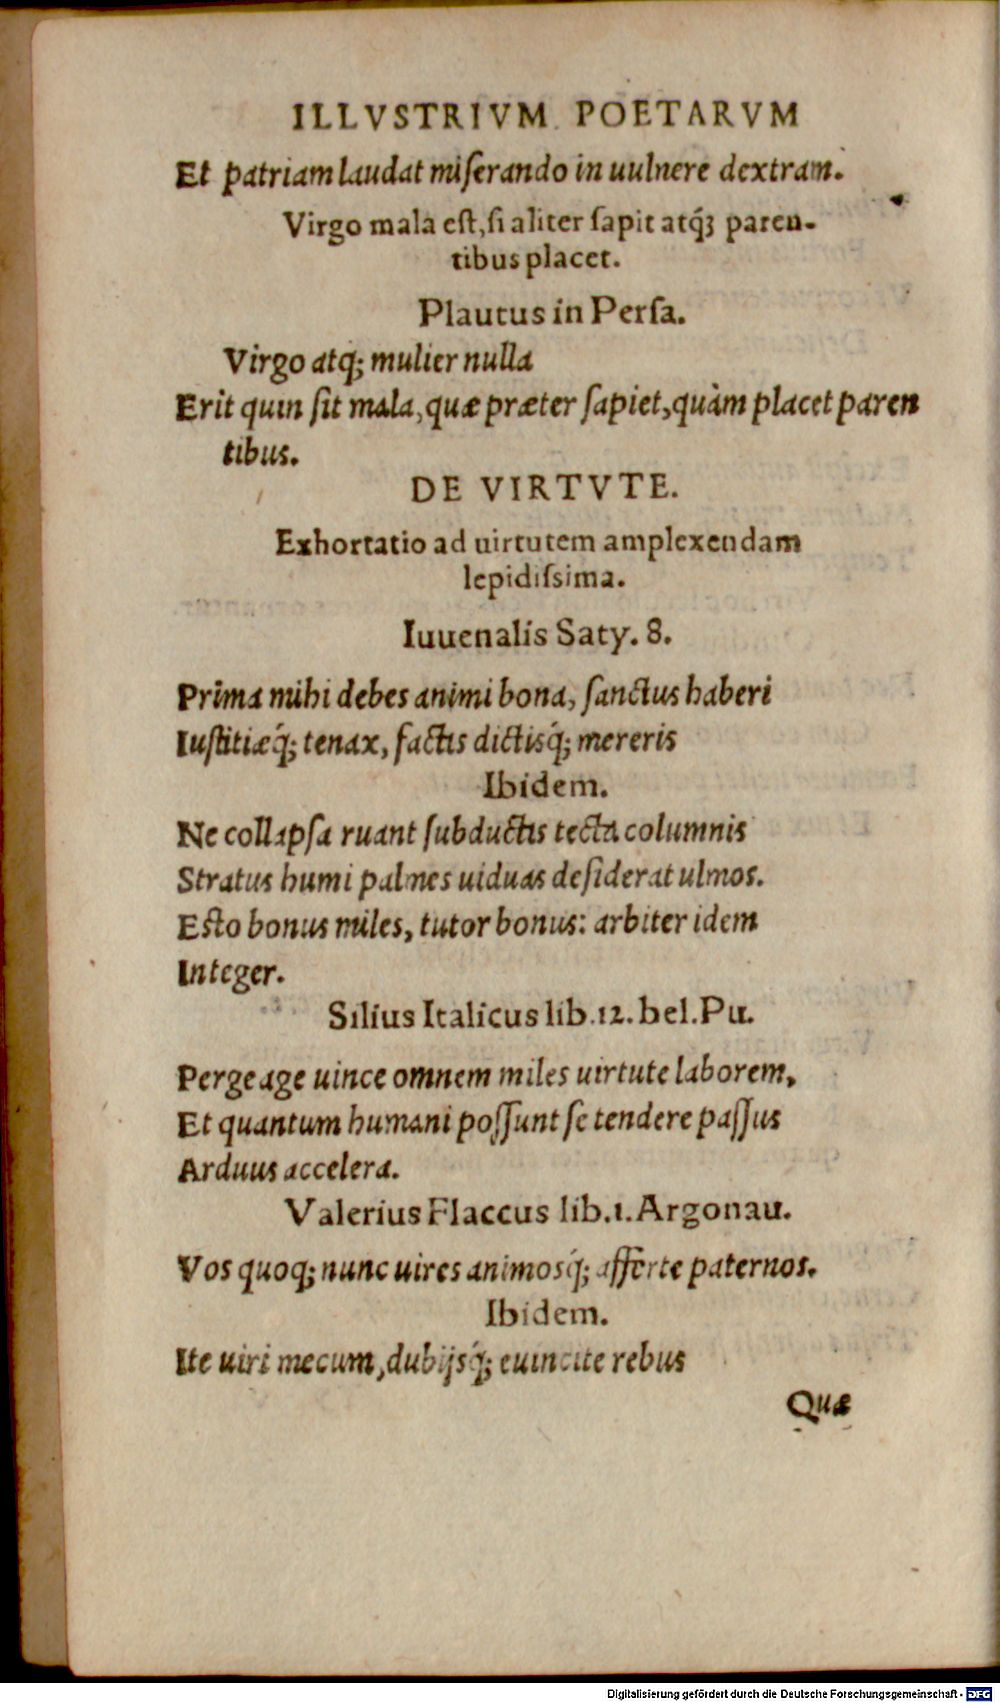 ILLVSTRIVM POETARVM
Et patriam laudat miſerando in uulnere dextram.
Virgo mala eſt, ſi aliter ſapit atq́ꝫ paren-
tibus placet.
Plautus in Perſa.
Virgo atq; mulier nulla
Erit quin ſit mala, quæ præter ſapiet, quàm placet paren
tibus.
DE VIRTVTE.
Exhortatio ad uirtutem amplexendam
lepidiſsima.
Iuuenalis Saty. 8.
Prima mihi debes animi bona, ſanctus haberi
Iuſtitiæq́; tenax, factis dictisq́; mereris
Ibidem.
Ne collapſa ruant ſubductis tecta columnis
Stratus humi palmes uiduas deſiderat ulmos.
Eſto bonus miles, tutor bonus: arbiter idem
Integer.
Silius Italicus lib. 12. bel. Pu.
Perge age uince omnem miles uirtute laborem,
Et quantum humani poſſunt ſe tendere paſſus
Arduus accelera.
Valerius Flaccus lib. 1. Argonau.
Vos quoq; nunc uires animosq́; afferte paternos.
Ibidem.
Ite uiri mecum, dubijsq́; euincite rebus
Quæ
Digitalisierung gefördert durch die Deutsche Forschungsgemeinschaft - DFG